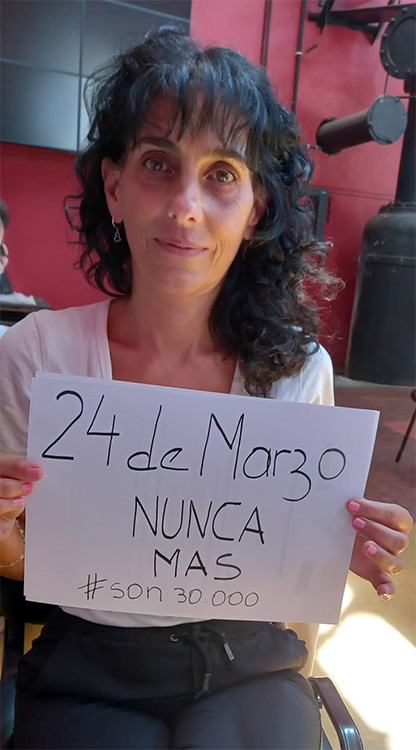 24 de Marzo
NUNCA
MAS
#son 30.000